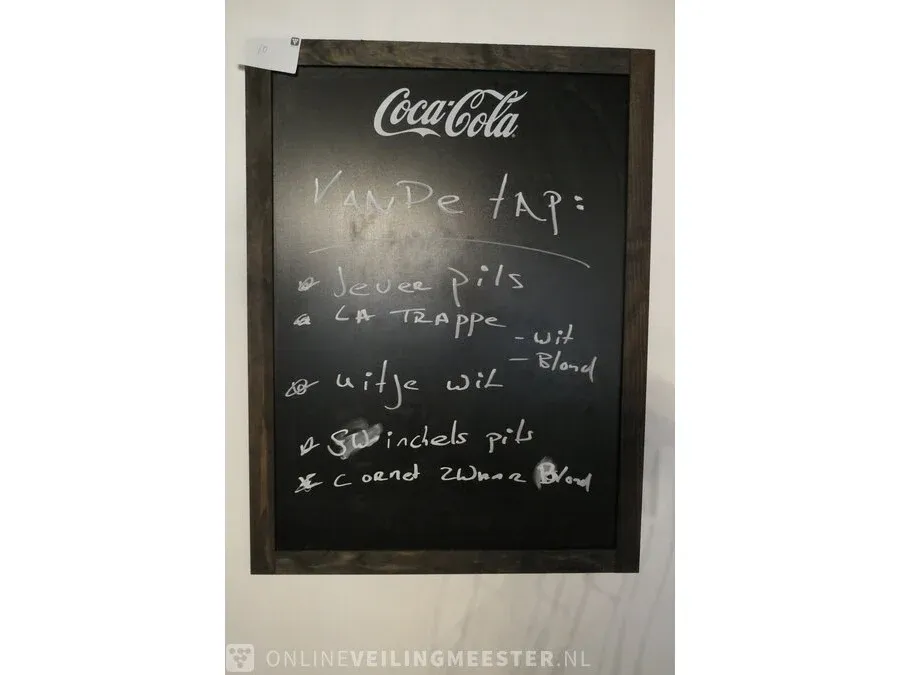 10
Coca-Cola
VANDe tAP:
Jever pils
LA TRAPPE
- Wit
- Blond
uitje wit
SWinckels pils
CORNet ZWAAR Blond
ONLINEVEILINGMEESTER.NL